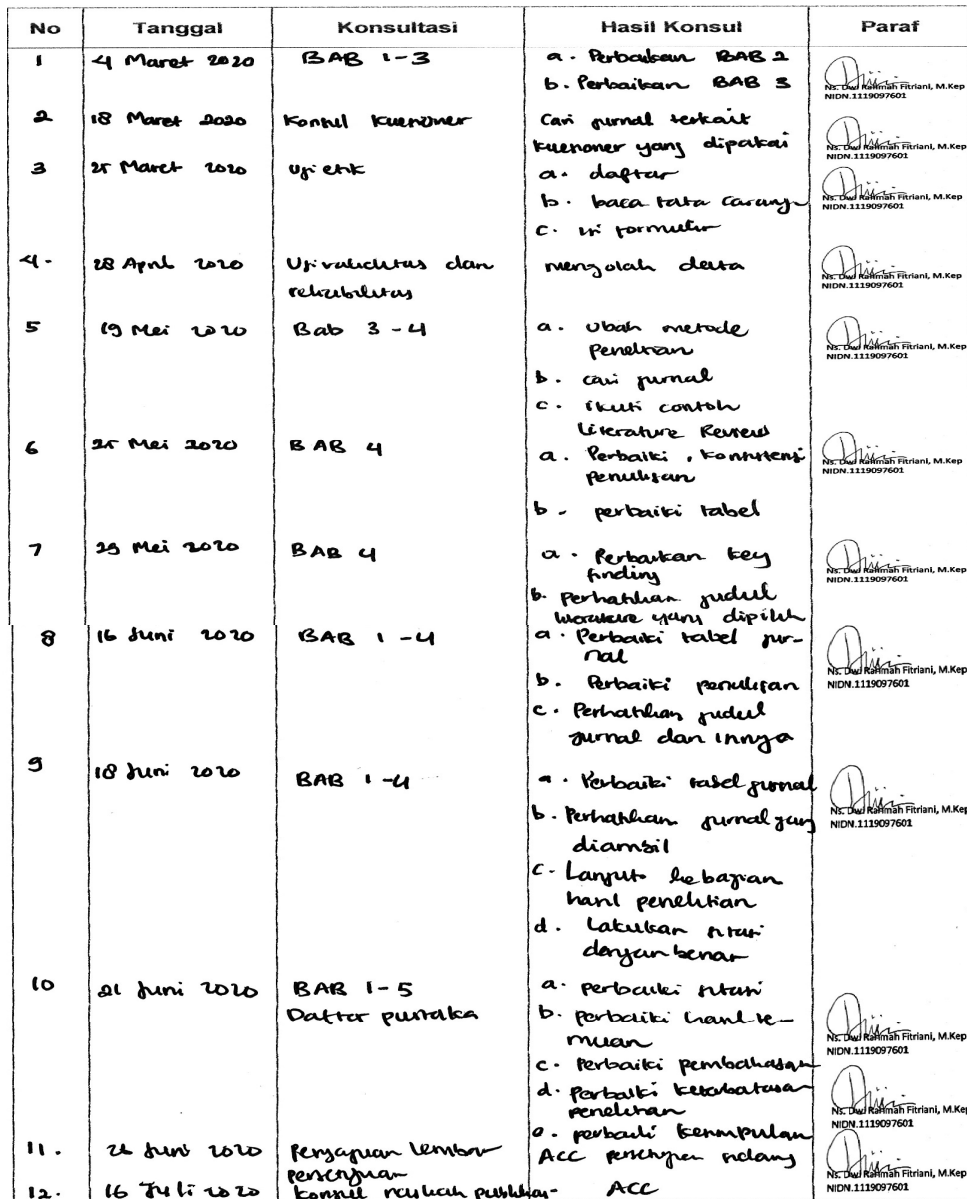 No Tanggal Konsultasi Hasil Konsul Paraf
1 4 Maret 2020 BAB 1-3 a. Perbaikan BAB 2
b. Perbaikan BAB 3
Ns. Dwi Rahmah Fitriani, M.Kep
NIDN.1119097601
2 18 Maret 2020 Konsul Kuesioner Cari jurnal terkait
kuesioner yang dipakai
Ns. Dwi Rahmah Fitriani, M.Kep
NIDN.1119097601
3 25 Maret 2020 Uji etik a. daftar
b. baca tata caranya
c. isi formulir
Ns. Dwi Rahmah Fitriani, M.Kep
NIDN.1119097601
4. 28 April 2020 Uji validitas dan mengolah data
reliabilitas
Ns. Dwi Rahmah Fitriani, M.Kep
NIDN.1119097601
5 19 Mei 2020 Bab 3-4 a. Ubah metode
penelitian
b. cari jurnal
c. ikuti contoh
Literature Review
Ns. Dwi Rahmah Fitriani, M.Kep
NIDN.1119097601
6 25 Mei 2020 BAB 4 a. Perbaiki, konsistensi
penulisan
b. perbaiki tabel
Ns. Dwi Rahmah Fitriani, M.Kep
NIDN.1119097601
7 29 Mei 2020 BAB 4 a. Perbaikan key
finding
b. perhatikan judul
literature yang dipilih
Ns. Dwi Rahmah Fitriani, M.Kep
NIDN.1119097601
8 16 Juni 2020 BAB 1-4 a. Perbaiki tabel jur-
nal
b. Perbaiki penulisan
c. Perhatikan judul
jurnal dan isinya
Ns. Dwi Rahmah Fitriani, M.Kep
NIDN.1119097601
9 18 Juni 2020 BAB 1-4 a. Perbaiki tabel jurnal
b. Perhatikan jurnal yang
diambil
c. Lanjut ke bagian
hasil penelitian
d. Lakukan sitasi
dengan benar
Ns. Dwi Rahmah Fitriani, M.Kep
NIDN.1119097601
10 21 Juni 2020 BAB 1-5 a. perbaiki sitasi
Daftar pustaka b. perbaiki hasil te-
muan
c. Perbaiki pembahasan
d. Perbaiki keterbatasan
penelitian
e. perbaiki kesimpulan
Ns. Dwi Rahmah Fitriani, M.Kep
NIDN.1119097601
11. 26 Juni 2020 Pengajuan lembar ACC persetujuan sidang
persetujuan
Ns. Dwi Rahmah Fitriani, M.Kep
NIDN.1119097601
12. 16 Juli 2020 konsul naskah publikasi ACC
Ns. Dwi Rahmah Fitriani, M.Kep
NIDN.1119097601